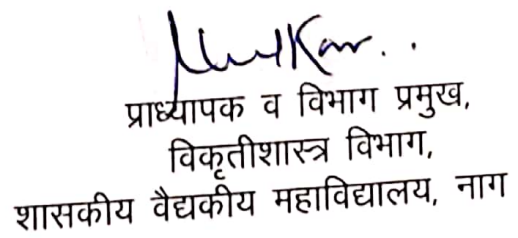 प्राध्यापक व विभाग प्रमुख,
विकृतीशास्त्र विभाग,
शासकीय वैद्यकीय महाविद्यालय, नाग